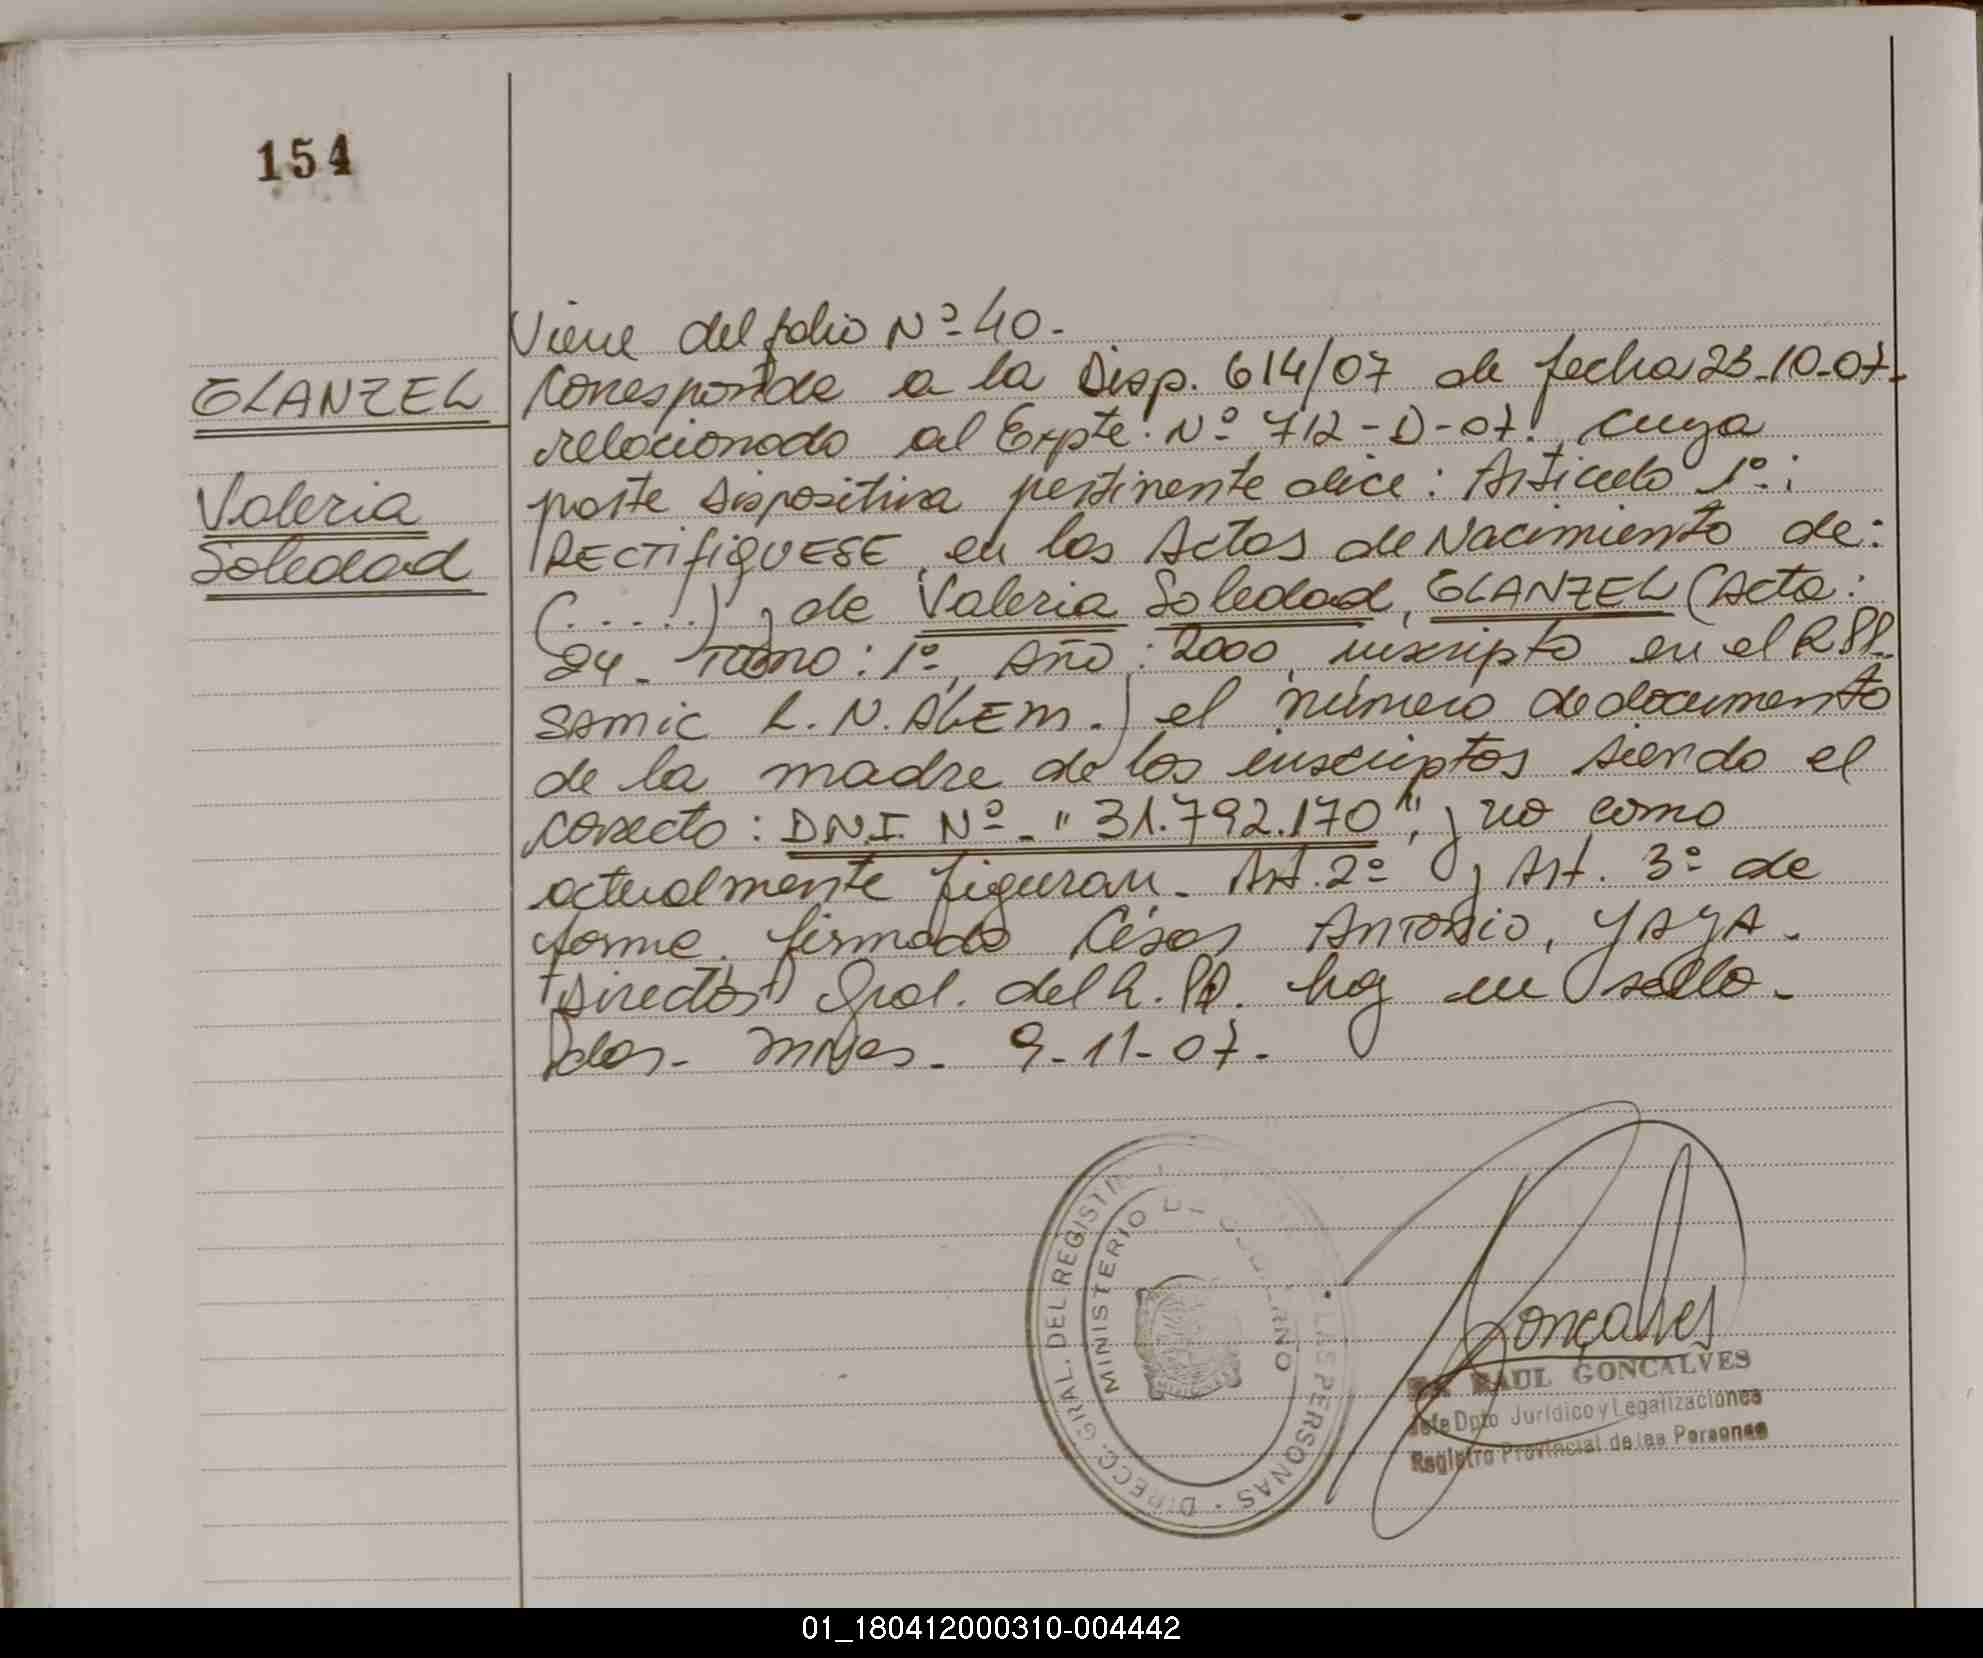 154
Viene del folio Nº 40.-
GLANZEL
Corresponde a la Disp. 614/07 de fecha 23-10-07-
relacionado al Expte. Nº 712-D-07. cuya
Valeria
parte dispositiva pertinente dice: Artículo 1º:
Soledad
RECTIFIQUESE, en las Actas de Nacimiento de:
(.....) y de Valeria Soledad, GLANZEL (Acta:
24- Tomo: 1º, Año: 2000, inscripto en el RPP.
SAMIC L.N. ALEM.) el número de documento
de la madre de los inscriptos siendo el
correcto: DNI. Nº- "31.792.170", y no como
actualmente figuran. Art. 2º y Art. 3º de
forma. firmado César Antonio, YAYA.
Director Gral. del R.PP. hay un sello.
Pdas- Mnes- 9-11-07.
DIRECC. GRAL. DEL REGISTR LAS PERSONAS
MINISTERIO DE GOBIERNO
Goncalves
RAUL GONCALVES
Jefe Dpto Jurídico y Legalizaciones
Registro Provincial de las Personas
01_180412000310-004442